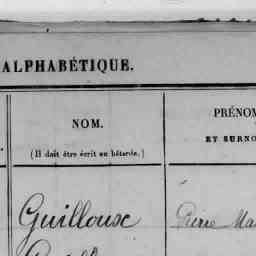 ALPHABÉTIQUE.
NOM.
(Il doit être écrit en bâtarde.)
PRÉNOM
ET SURNO
Guillouse Pierre Ma